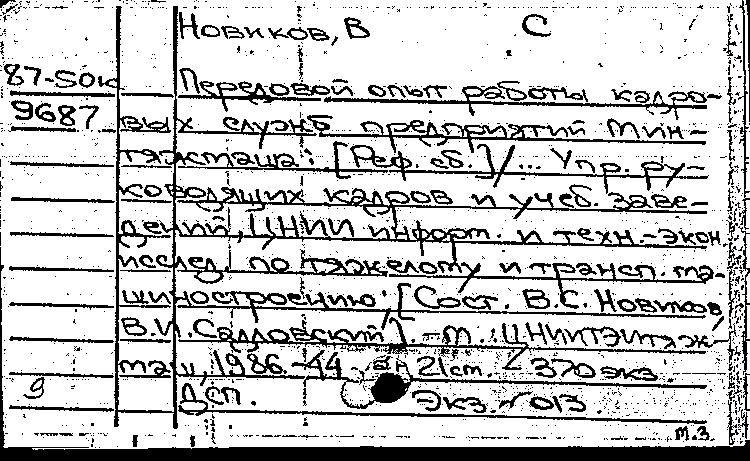 Новиков, В С
87-5ок Передовой опыт работы кадро-
9687 вых служб предприятий Мин-
тяжмаша: [Реф. сб.]/... Упр. ру-
ководящих кадров и учеб. заве-
дений, ЦНИИ информ. и техн.-экон.
исслед. по тяжелому и трансп. ма-
шиностроению; [Сост. В.С. Новиков,
В.И. Садловский]. - М.: ЦНИИТЭИтяж-
маш, 1986. - 44 21 см. 370 экз.
9 Дсп. Экз. № 013.
т.з.